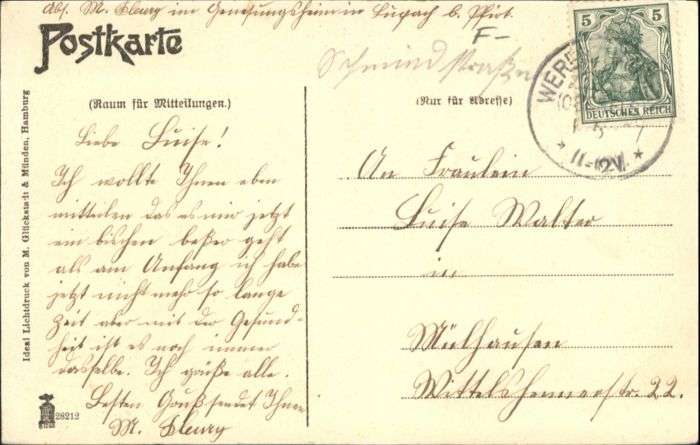 Abs. M. Fleury im Genesungsheim in Lüpach b. Pfirt.
Postkarte
F-
Schmied straße
5 5
DEUTSCHES REICH
WERE
11-12V.
(Raum für Mitteilungen.)
(Nur für Adresse)
Liebe Luise!
Ich wollte Ihnen eben
mitteilen das es mir jetzt
ein bischen beßer geht
als am Anfang ich habe
jetzt nicht mehr so lange
Zeit aber mit der Gesund-
heit ist es noch immer
dasselbe. Ich grüße alle.
Besten Gruß sendet Ihnen
M. Fleury
An Fräulein
Luise Walter
in
Mülhausen
Wittelsheimerstr. 22.
Ideal Lichtdruck von M. Glückstadt & Münden, Hamburg
28212